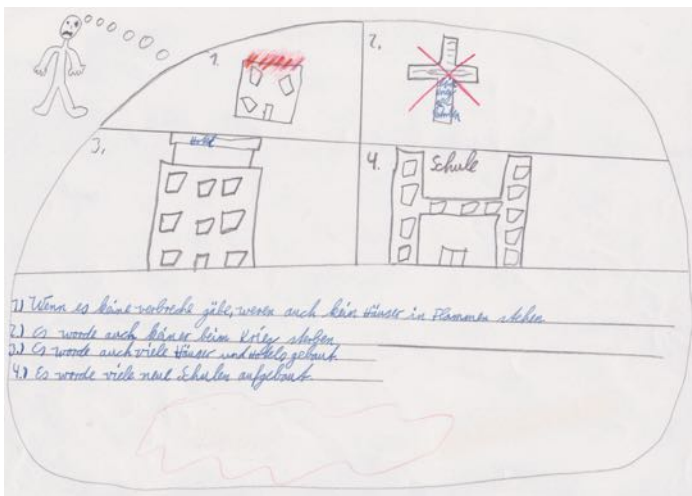 1.
2.
3.
Hotel
4.
Schule
1.) Wenn es keine verbreche gäbe, weren auch kein Häuser in Flammen stehen.
2.) Es worde auch keiner beim Krieg sterben
3.) Es worde auch viele Häuser und Hotels gebaut.
4.) Es worde viele neue Schulen aufgebaut.